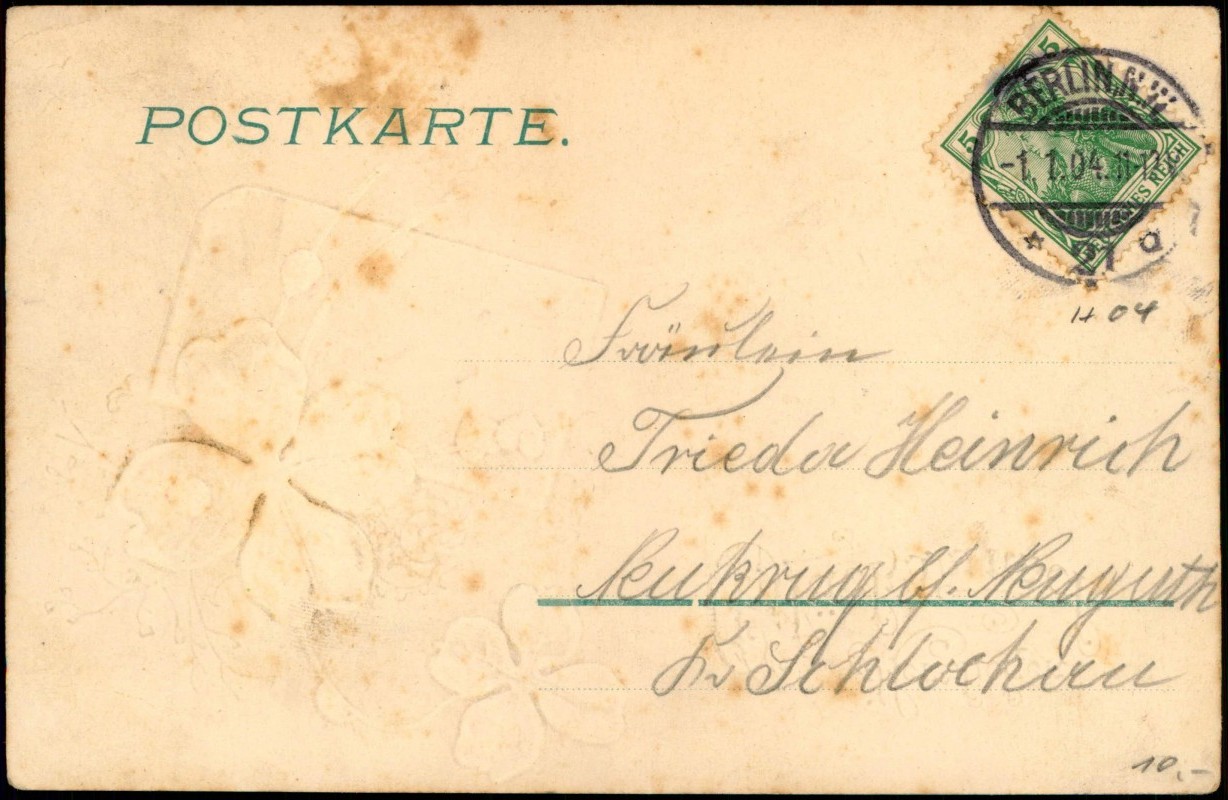 POSTKARTE.
5
5
DEUTSCHES REICH
BERLIN N.W.
-1.1.04.11-12
* 21 a
H 04
Fräulein
Frieda Heinrich
Neukrug b/. Neuguth
Kr Schlochau
10,-